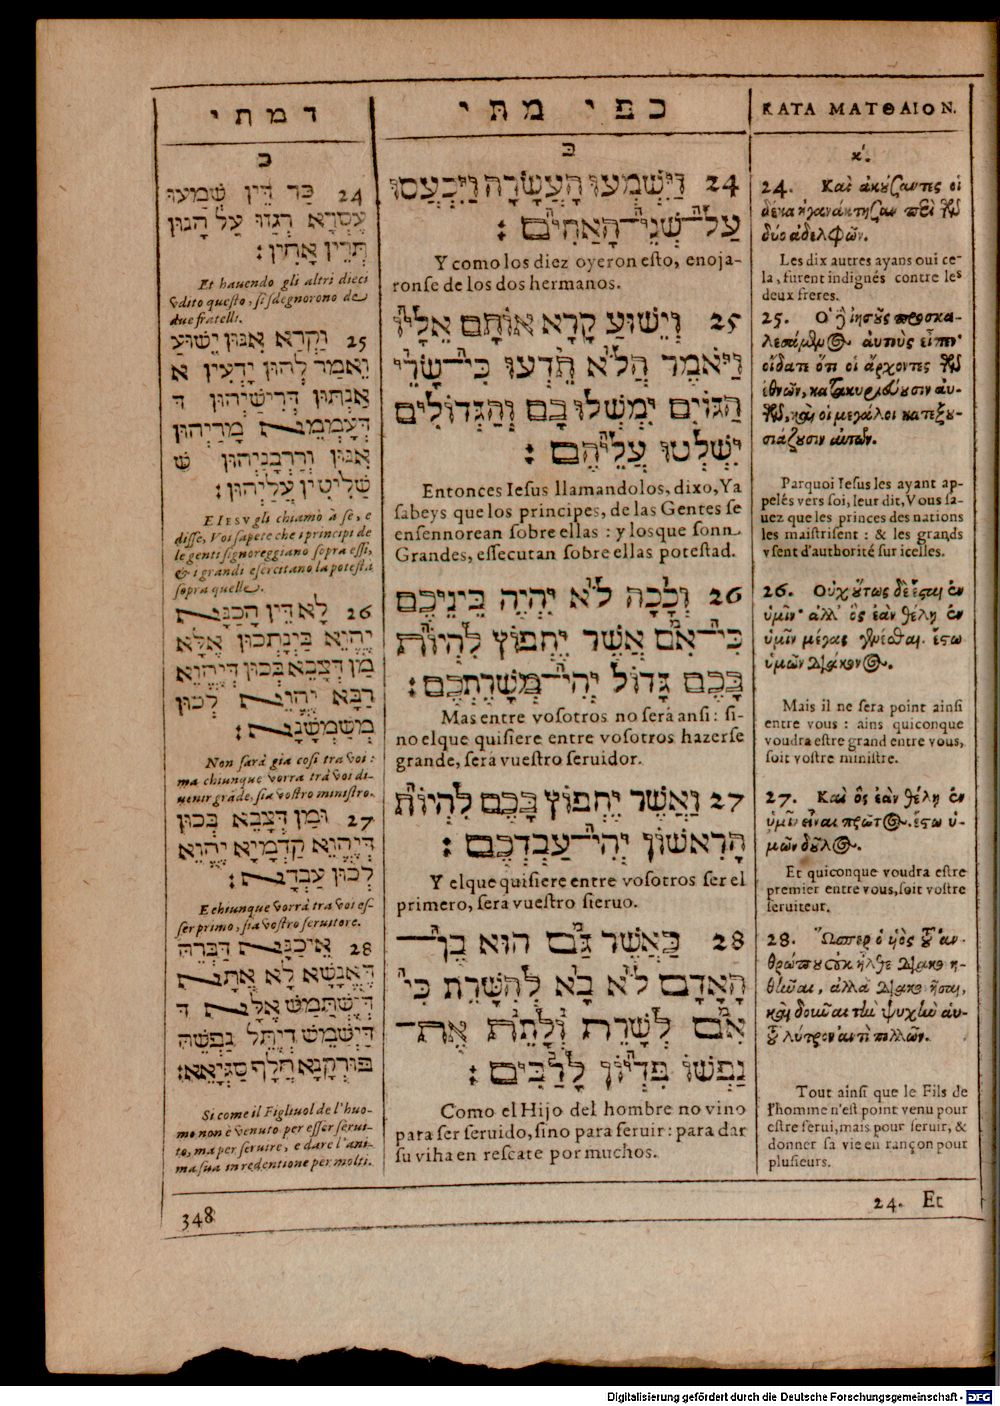 דמתי
כ
24 כַּד דֵּין שְׁמַעוּ
עֶסְרָא רְגַזוּ עַל הָנוּן
תְּרֵין אַחִין:
Et hauendo gli altri dieci
vdito questo, si sdegnorono de
due fratelli.
25 וַקְרָא אִנּוּן יֵשׁוּעַ
וֶאֵמַר לְהוּן יָדְעִין א
אַנְתּוּן דְּרִישַׁיְהוּן ד
דְּעַמְמֵא מָרַיְהוּן
אִנּוּן וְרַרְבָנַיְהוּן שׁ
שַׁלִּיטִין עֲלַיְהוּן:
E IESV gli chiamò à se, e
disse, Voi sapete che i principi de
le genti signoreggiano sopra essi,
& i grandi esercitano la potestà
sopra quelle.
26 לָא דֵּין הָכַנָּא
יֶהְוֵא בַּיְנָתְכוּן אֶלָּא
מַן דְּצָבֵא בְּכוּן דְּיֶהְוֵא
רַבָּא יֶהְוֵא לְכוּן
מְשַׁמְּשָׁנָא:
Non sarà gia cosi tra voi:
ma chiunque vorra trà voi di-
uenir grãde, sia vostro ministro.
27 וּמַן דְּצָבֵא בְּכוּן
דְּיֶהְוֵא קַדְמָיָא יֶהְוֵא
לְכוּן עַבְדָא:
E chiunque vorrà tra voi es-
ser primo, sia vostro seruitore.
28 אֵיכַנָּא דַּבְרֵהּ
דֶּאנָשָׁא לָא אֶתָא
דְּיִשְׁתַּמַּשׁ אֶלָּא ד
דַּישַׁמֵּשׁ דְּיִתֵּל נַפְשֵׁהּ
פּוּרְקָנָא חֲלָף סַגִּיאֵא:
Si come il Figliuol de l'huo-
mo non è venuto per esser serui-
to, ma per seruire, e dare l'ani-
ma sua in redentione per molti.
כפי מתי
כ
24 וַיִּשְׁמְעוּ הָעֲשָׂרָה וַיִּכְעֲסוּ
עַל־שְׁנֵי־הָאַחִים:
Y como los diez oyeron esto, enoja-
ronse de los dos hermanos.
25 וְיֵשׁוּעַ קָרָא אוֹתָם אֵלָיו
וַיֹּאמֶר הֲלֹא תֵּדְעוּ כִּי־שָׂרֵי
הַגּוֹיִם יִמְשְׁלוּ בָם וְהַגְּדוֹלִים
יִשְׁלְטוּ עֲלֵיהֶם:
Entonces Iesus llamandolos, dixo, Ya
sabeys que los principes, de las Gentes se
ensennorean sobre ellas : y los que sonn
Grandes, essecutan sobre ellas potestad.
26 וְלָכָה לֹא יִהְיֶה בֵּינֵיכֶם
כִּי־אִם אֲשֶׁר יַחְפּוֹץ לִהְיוֹת
בָּכֶם גָּדוֹל יְהִי־מְשָׁרֶתְכֶם:
Mas entre vosotros no será ansi: si-
no elque quisiere entre vosotros hazerse
grande, será vuestro seruidor.
27 וַאֲשֶׁר יַחְפּוֹץ בָּכֶם לִהְיוֹת
הָרִאשׁוֹן יְהִי־עַבְדְכֶם:
Y elque quisiere entre vosotros ser el
primero, será vuestro sieruo.
28 כַּאֲשֶׁר גַּם הוּא בֶן־
הָאָדָם לֹא בָא לְהִשָּׁרֵת כִּי
אִם לְשָׁרֵת וְלָתֵת אֶת־
נַפְשׁוֹ פִּדְיוֹן לָרַבִּים:
Como el Hijo del hombre no vino
para ser seruido, sino para seruir: para dar
su viha en rescate por muchos.
ΚΑΤΑ ΜΑΤΘΑΙΟΝ.
κ'.
24. Καὶ ἀκούσαντες οἱ
δέκα ἠγανάκτησαν περὶ τῶν
δύο ἀδελφῶν.
Les dix autres ayans oui ce-
la, furent indignés contre les
deux freres.
25. Ὁ δὲ ἰησοῦς προσκα-
λεσάμενος αὐτοὺς εἶπεν·
οἴδατε ὅτι οἱ ἄρχοντες τῶν
ἐθνῶν, κατακυριεύουσιν αὐ-
τῶν, καὶ οἱ μεγάλοι κατεξου-
σιάζουσιν αὐτῶν.
Parquoi Iesus les ayant ap-
pelés vers soi, leur dit, Vous sa-
uez que les princes des nations
les maistrisent : & les grands
vsent d'authorité sur icelles.
26. Οὐχ οὕτως δὲ ἔσται ἐν
ὑμῖν· ἀλλ' ὃς ἐὰν θέλῃ ἐν
ὑμῖν μέγας γενέσθαι, ἔστω
ὑμῶν διάκονος.
Mais il ne sera point ainsi
entre vous : ains quiconque
voudra estre grand entre vous,
soit vostre ministre.
27. Καὶ ὃς ἐὰν θέλῃ ἐν
ὑμῖν εἶναι πρῶτος, ἔστω ὑ-
μῶν δοῦλος.
Et quiconque voudra estre
premier entre vous, soit vostre
seruiteur.
28. Ὥσπερ ὁ υἱὸς τοῦ ἀν-
θρώπου οὐκ ἦλθε διακονη-
θῆναι, ἀλλὰ διακονῆσαι,
καὶ δοῦναι τὴν ψυχὴν αὐ-
τοῦ λύτρον ἀντὶ πολλῶν.
Tout ainsi que le Fils de
l'homme n'est point venu pour
estre serui, mais pour seruir, &
donner sa vie en rançon pour
plusieurs.
348
24. Et
Digitalisierung gefördert durch die Deutsche Forschungsgemeinschaft - DFG